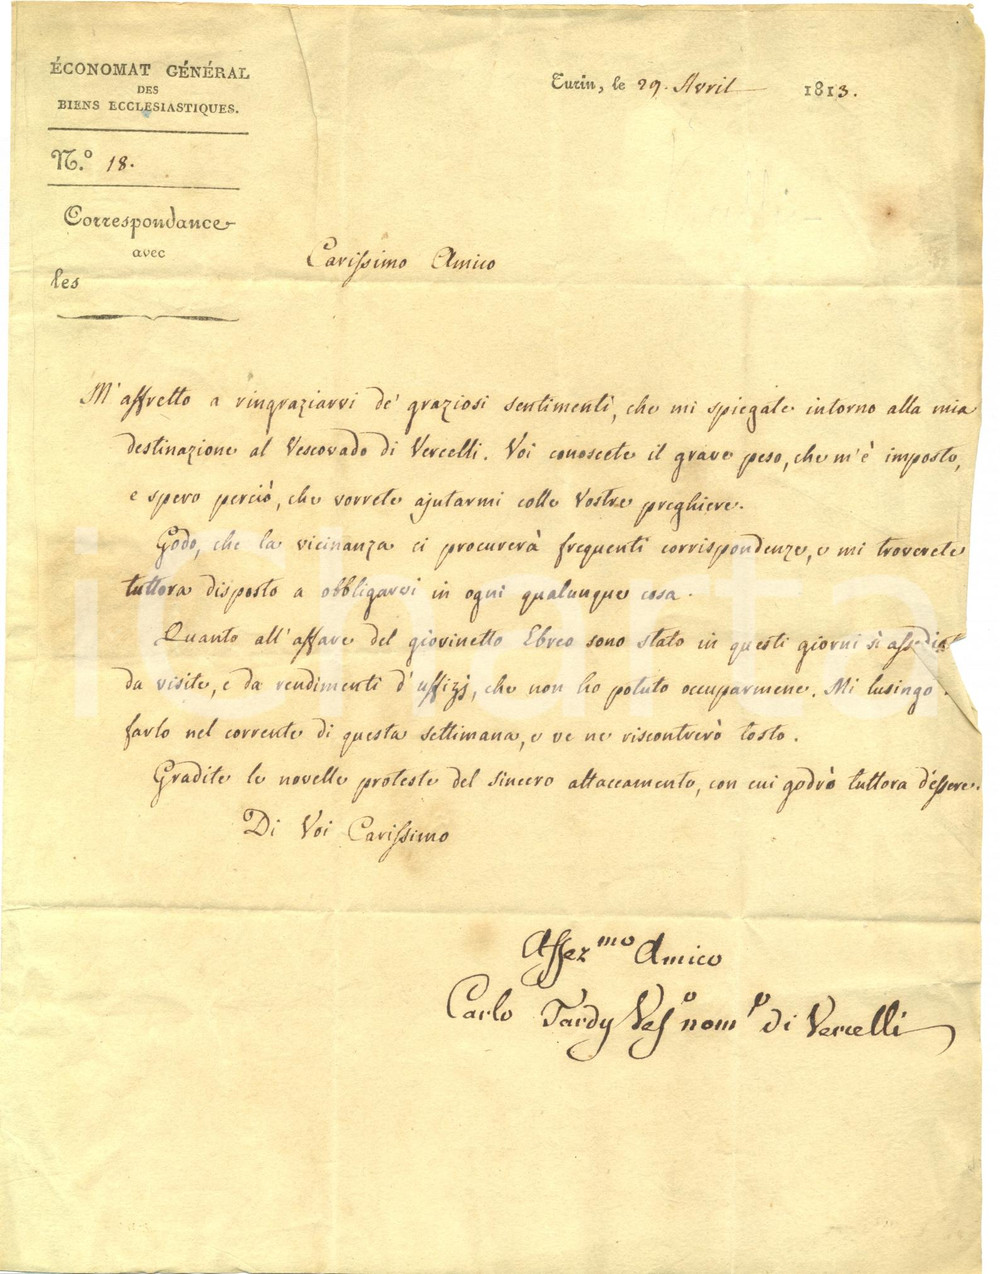 ÉCONOMAT GÉNÉRAL
DES
BIENS ECCLESIASTIQUES.
Turin, le 29. Avril 1813.
N.º 18.
Correspondance
avec
les
Carissimo Amico
M'affretto a ringraziarvi de' graziosi sentimenti, che mi spiegate intorno alla mia
destinazione al Vescovado di Vercelli. Voi conoscete il grave peso, che m'è imposto,
e spero perciò, che vorrete ajutarmi colle vostre preghiere.
Godo, che la vicinanza ci procurerà frequenti corrispondenze, e mi troverete
tuttora disposto a obbligarvi in ogni qualunque cosa.
Quanto all'affare del giovinetto Ebreo sono stato in questi giorni sì
da visite, e da rendimenti d'uffizj, che non ho potuto occuparmene. Mi lusingo
farlo nel corrente di questa settimana, e ve ne riscontrerò tosto.
Gradite le novelle proteste del sincero attaccamento, con cui godrò tuttora d'essere.
Di Voi Carissimo
Affez.mo Amico
Carlo Tardy Vesº nomº di Vercelli
iCharta